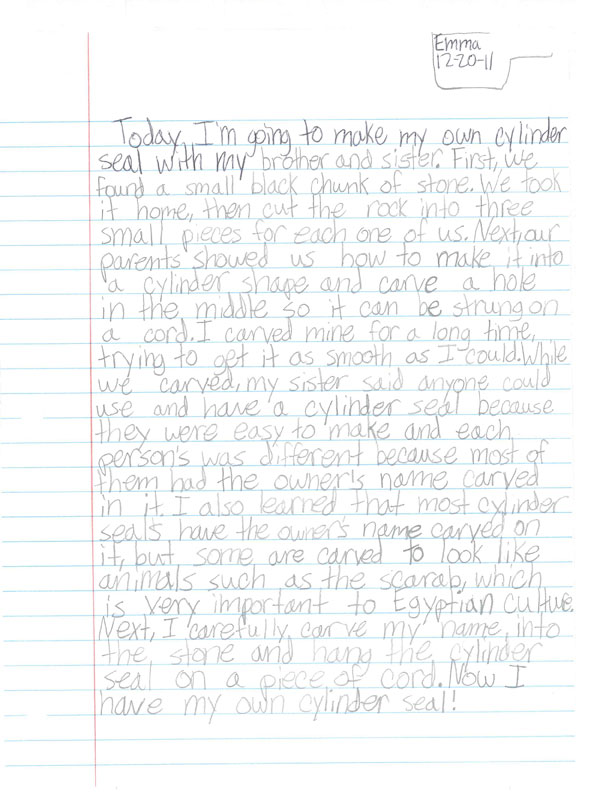 Emma
12-20-11
Today, I'm going to make my own cylinder
seal with my brother and sister. First, we
found a small black chunk of stone. We took
it home, then cut the rock into three
small pieces for each one of us. Next, our
parents showed us how to make it into
a cylinder shape and carve a hole
in the middle so it can be strung on
a cord. I carved mine for a long time,
trying to get it as smooth as I could. While
we carved, my sister said anyone could
use and have a cylinder seal because
they were easy to make and each
person's was different because most of
them had the owner's name carved
in it. I also learned that most cylinder
seals have the owner's name carved on
it, but some are carved to look like
animals such as the scarab, which
is very important to Egyptian culture.
Next, I carefully carve my name into
the stone and hang the cylinder
seal on a piece of cord. Now I
have my own cylinder seal!